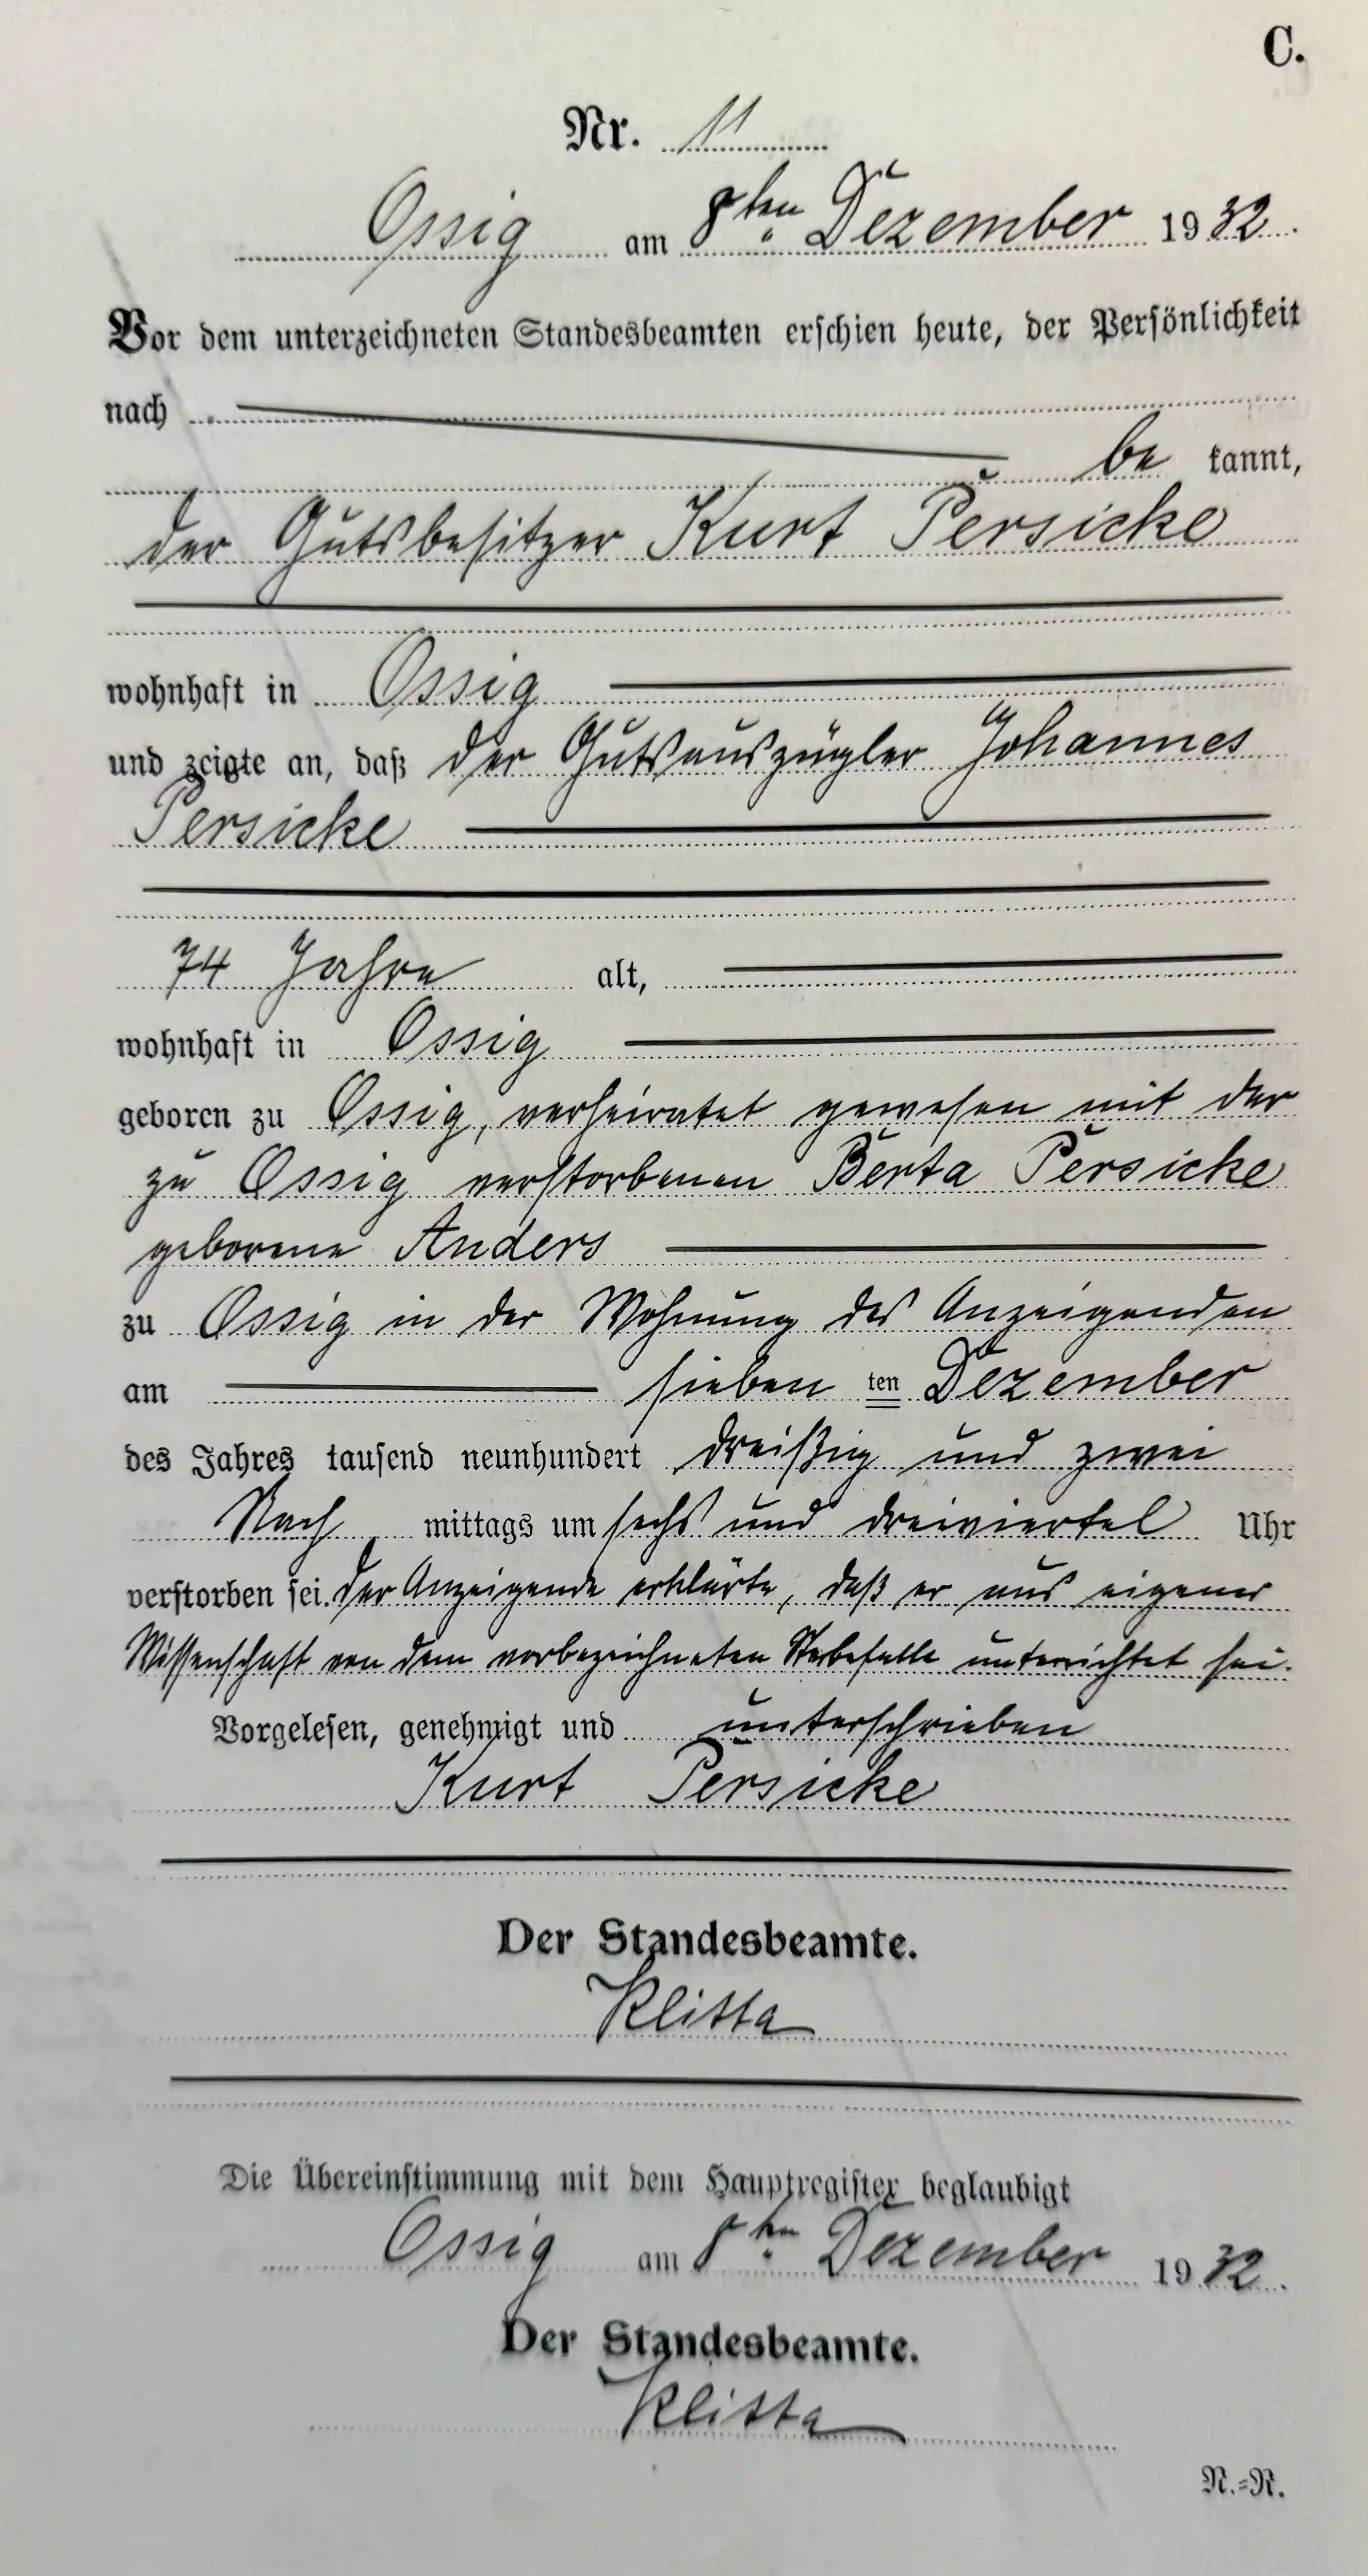 C.
Nr. 11
Ossig am 8ten Dezember 1932.
Vor dem unterzeichneten Standesbeamten erschien heute, der Persönlichkeit
nach
be kannt,
der Gutsbesitzer Kurt Persicke
wohnhaft in Ossig
und zeigte an, daß der Gutsauszügler Johannes
Persicke
74 Jahre alt,
wohnhaft in Ossig
geboren zu Ossig, verheiratet gewesen mit der
zu Ossig verstorbenen Berta Persicke
geborene Anders
zu Ossig in der Wohnung des Anzeigenden
am sieben ten Dezember
des Jahres tausend neunhundert dreißig und zwei
Nach mittags um sechs und dreiviertel Uhr
verstorben sei. Der Anzeigende erklärte, daß er aus eigener
Wissenschaft von dem vorbezeichneten Sterbefalle unterrichtet sei.
Vorgelesen, genehmigt und unterschrieben
Kurt Persicke
Der Standesbeamte.
Klitta
Die Übereinstimmung mit dem Hauptregister beglaubigt
Ossig am 8ten Dezember 1932.
Der Standesbeamte.
Klitta
N.=R.